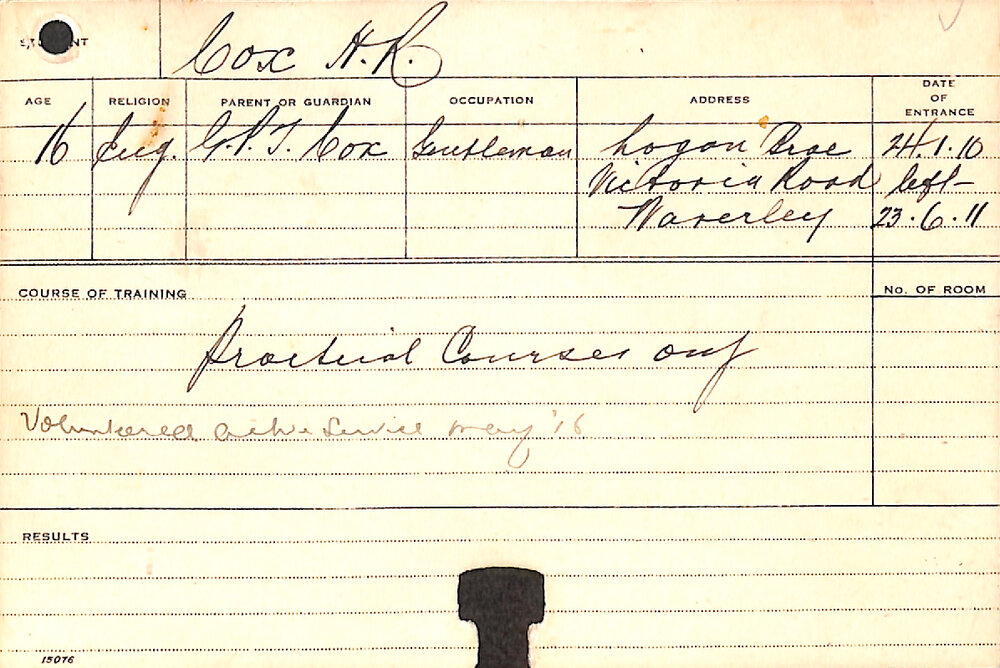 STUDENT
Cox H.R.
AGE RELIGION PARENT OR GUARDIAN OCCUPATION ADDRESS DATE OF ENTRANCE
16 Eng. G.P.T. Cox Gentleman Logan Brae 24.1.10
Victoria Road left
Waverley 23.6.11
COURSE OF TRAINING No. OF ROOM
Practical Courses only
Volunteered active service may '16
RESULTS
15076